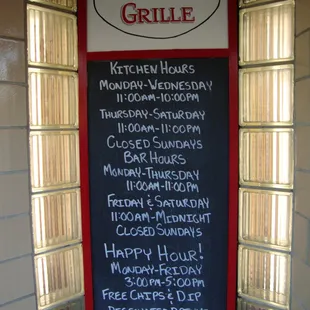 GRILLE
KITCHEN HOURS
MONDAY-WEDNESDAY
11:00AM-10:00PM
THURSDAY-SATURDAY
11:00AM-11:00PM
CLOSED SUNDAYS
BAR HOURS
MONDAY-THURSDAY
11:00AM-11:00PM
FRIDAY & SATURDAY
11:00AM-MIDNIGHT
CLOSED SUNDAYS
HAPPY HOUR!
MONDAY-FRIDAY
3:00PM-5:00PM
FREE CHIPS & DIP